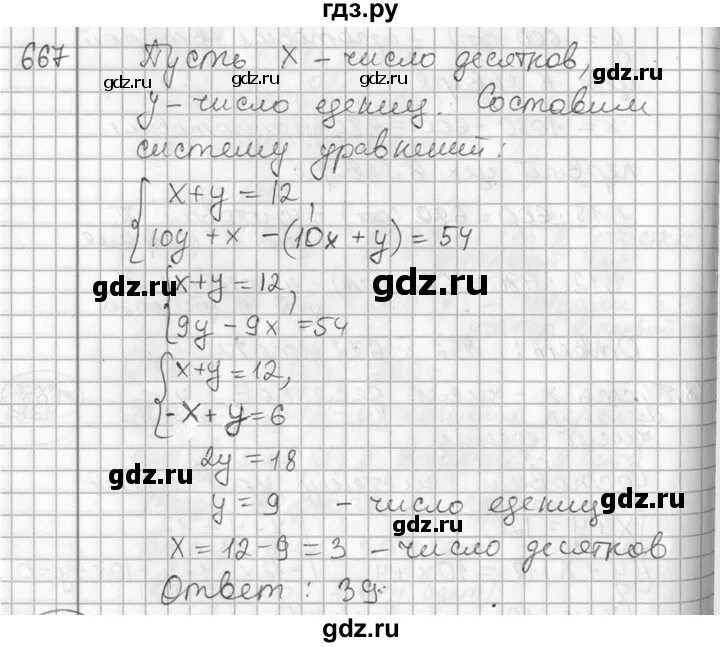 гдз.ру
667 Пусть x - число десятков,
gdz.ru gdz.ru
y - число едениц. Составим
систему уравнений:
gdz.ru gdz.ru
x + y = 12,
10y + x - (10x + y) = 54
gdz.ru gdz.ru
x + y = 12,
9y - 9x = 54
x + y = 12,
-x + y = 6
gdz.ru gdz.ru
2y = 18
y = 9 - число едениц
gdz.ru gdz.ru
x = 12 - 9 = 3 - число десятков
Ответ: 39.
gdz.ru